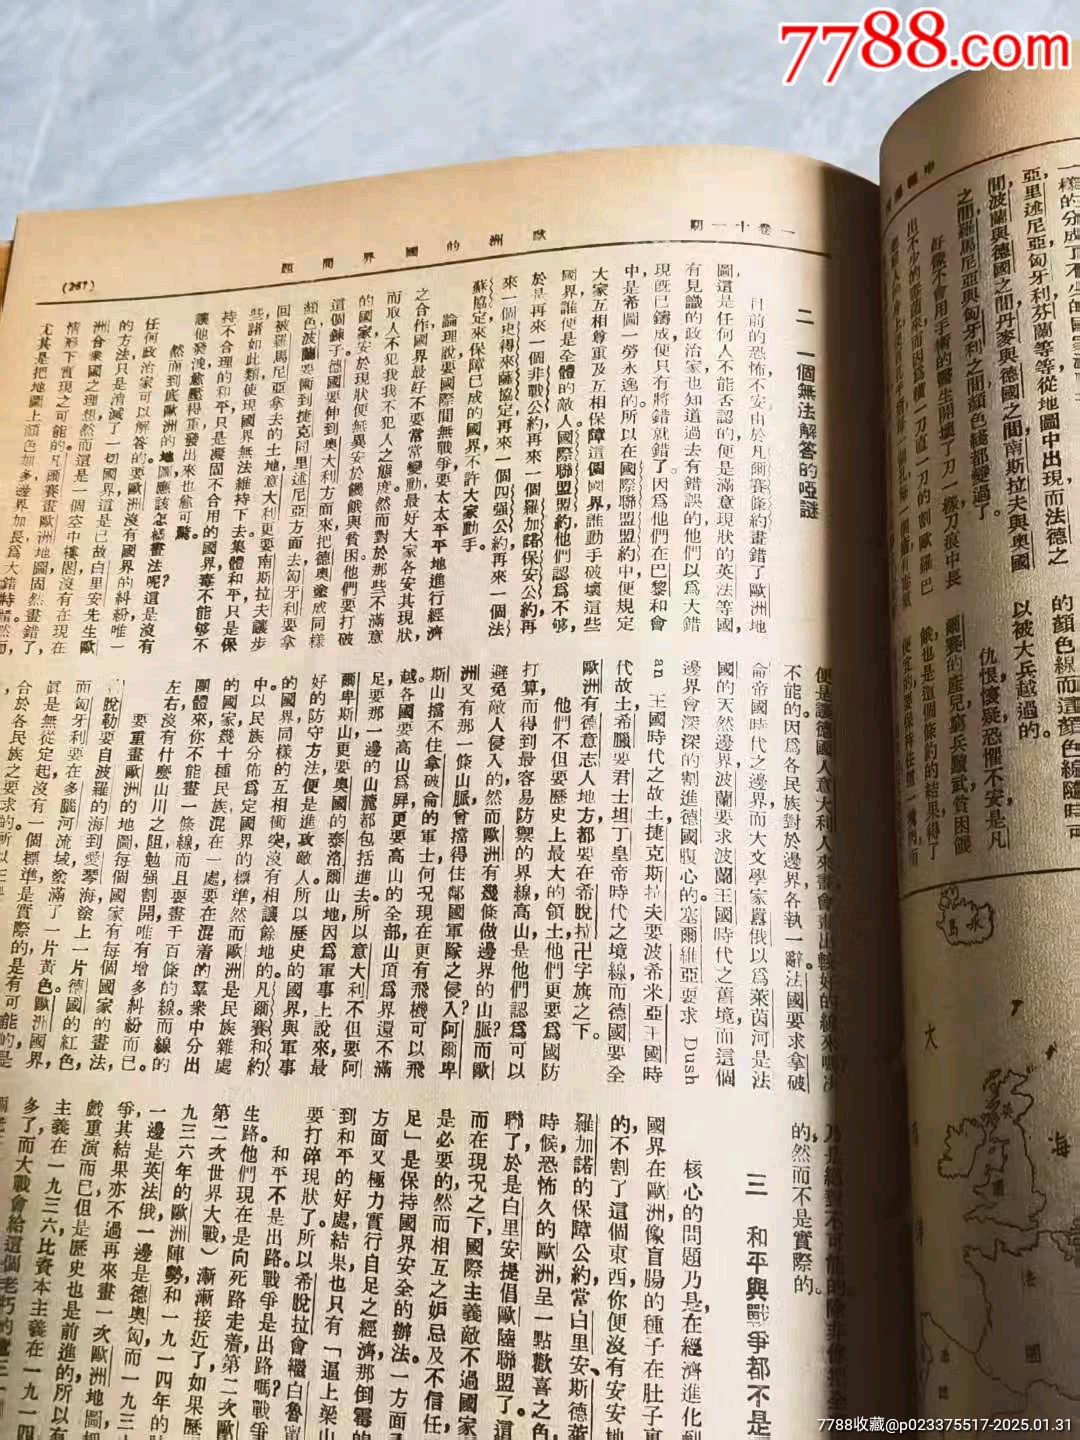 7788.com
一卷十一期
歐洲的國界問題
(267)
二 一個無法解答的啞謎
目前的恐怖不安由於凡爾賽條約畫錯了歐洲地
圖這是任何人不能否認的便是滿意現狀的英法等國
有見識的政治家也知道過去有錯誤的他們以爲大錯
現旣已鑄成便只有將錯就錯了因爲他們在巴黎和會
中是希圖一勞永逸的所以在國際聯盟盟約中便規定
大家互相尊重及互相保障這個國界誰動手破壞這些
國界誰便是全體的敵人國際聯盟盟約他們認爲不够
於是再來一個非戰公約再來一個羅加諾保安公約再
來一個史得來薩協定再來一個四强公約再來一個法
蘇協定來保障已成的國界不許大家動手。
論理說要國際間無戰爭要太太平平地進行經濟
之合作國界最好不要常常變動最好大家各安其現狀,
而取人不犯我我不犯人之態度然而對於那些不滿意
的國家安於現狀便無異安於饑餓與貧困。他們要打破
這個鍊子德國要伸到奧大利方面來把德奧塗成同樣
顏色波蘭要衝到捷克阿里述尼亞方面去匈牙利要拿
回被羅馬尼亞拿去的土地意大利更要南斯拉夫讓步
些諸如此類使現國界無法維持下去集體和平只是保
持不合理的和平只是凝固不合用的國界毒不能够不
讓他發洩愈壓得重發出來也愈可驚。
然而到底歐洲的地圖應該怎樣畫法呢這是沒有
任何政治家可以解答的要歐洲沒有國界的糾紛唯一
的方法只是消滅了一切國界這是已故白里安先生歐
洲合衆國之理想然而這是一個空中樓閣沒有在現在
情形下實現之可能的凡爾賽畫歐洲地圖固然畫錯了,
尤其是把地圖上顏色加多邊界加長爲大錯特錯然而,
便是讓德國人意大利人來畫會畫出較好的線來嗎決
不能的因爲各民族對於邊界各執一辭法國要求拿破
侖帝國時代之邊界而大文學家囂俄以爲萊茵河是法
國的天然邊界波蘭要求波蘭王國時代之舊境而這個
邊界會深深的割進德國腹心的塞爾維亞要求 Dush
an 王國時代之故土捷克斯拉夫要波希米亞王國時
代故土希臘要君士坦丁皇帝時代之境線而德國要全
歐洲有德意志人地方都要在希脫拉卍字旗之下。
他們不但要歷史上最大的領土他們更要爲國防
打算而得到最容易防禦的界線高山是他們認爲可以
避免敵人侵入的然而歐洲有幾條做邊界的山脈?而歐
洲又有那一條山脈會擋得住鄰國軍隊之侵入?阿爾卑
斯山擋不住拿破侖的軍士何況現在更有飛機可以飛
越各國要高山爲屏更要高山的全部山頂爲界還不滿
足要那一邊的山麓都包括進去所以意大利不但要阿
爾卑斯山更要奧國的泰洛爾山地因爲軍事上說來最
好的防守方法便是進攻敵人所以歷史的國界與軍事
的國界同樣的互相衝突沒有相讓餘地的凡爾賽和約
中以民族分佈爲定國界的標準然而歐洲是民族雜處
的國家幾十種民族混在一處要在混淆的羣衆中分出
團體來你不能畫一條線而且要畫千百條的線而線的
左右沒有什麼山川之阻勉强割開唯有增多糾紛而已。
要重畫歐洲的地圖每個國家有每個國家的畫法,
希脫勒要自波羅的海到愛琴海塗上一片德國的紅色,
而匈牙利要在多腦河流域塗滿了一片黃色歐洲國界,
眞是無從定起沒有一個標準是實際的是有可能的是
合於各民族之要求的所以
的,然而不是實際的。
三 和平與戰爭都不是
核心的問題乃是在經濟進化到
國界在歐洲像盲腸的種子在肚子裏
的,不割了這個東西,你便沒有安安地
羅加諾的保障公約,當白里安、斯德萊
時候恐怖久的歐洲,呈一點歡喜之色
聯了於是白里安提倡歐陸聯盟了。這
而在現況之下,國際主義敵不過國家
是必要的然而相互之妒忌及不信任,
足」是保持國界安全的辦法。一方面
方面又極力實行自足之經濟那倒霉的
到和平的好處結果也只有「逼上梁山
要打碎現狀了。所以希脫拉會繼白魯甯
和平不是出路戰爭是出路嗎?戰爭
生路他們現在是向死路走着第二次歐
第二次世界大戰)漸漸接近了如果歷
九三六年的歐洲陣勢和一九一四年的
一邊是英法俄一邊是德奧匈而一九三
爭其結果亦不過再來畫一次歐洲地圖
戲重演而已但是歷史也是前進的所以
主義在一九三六比資本主義在一九一四
多了而大戰會給這個老朽的
申報週刊
一樣的分成了不少的國
亞里述尼亞匈牙利芬蘭等等從地圖中出現而法德之
間波蘭與德國之間丹麥與德國之間南斯拉夫與奧國
之間羅馬尼亞與匈牙利之間顏色綫都變過了。
好像不會用手術的醫生開壞了刀一樣刀痕中長
出不少的膿而來而因爲橫一刀直一刀的割歐羅巴
的顏色線而這顏色線隨時可
以被大兵越過的。
仇恨懷疑恐懼不安是凡
爾賽的產兒窮兵黷武貧困饑
餓也是這個條約的結果得了
便宜的要保持住這一塊肉而
冰島
大
西
洋
海
英
國
法
國
7788收藏@p023375517-2025.01.31